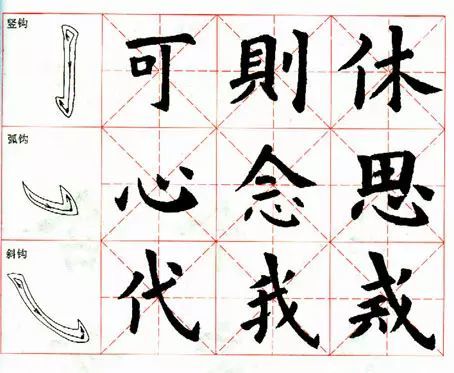 竖钩 可 則 休
弧钩 心 念 思
斜钩 代 我